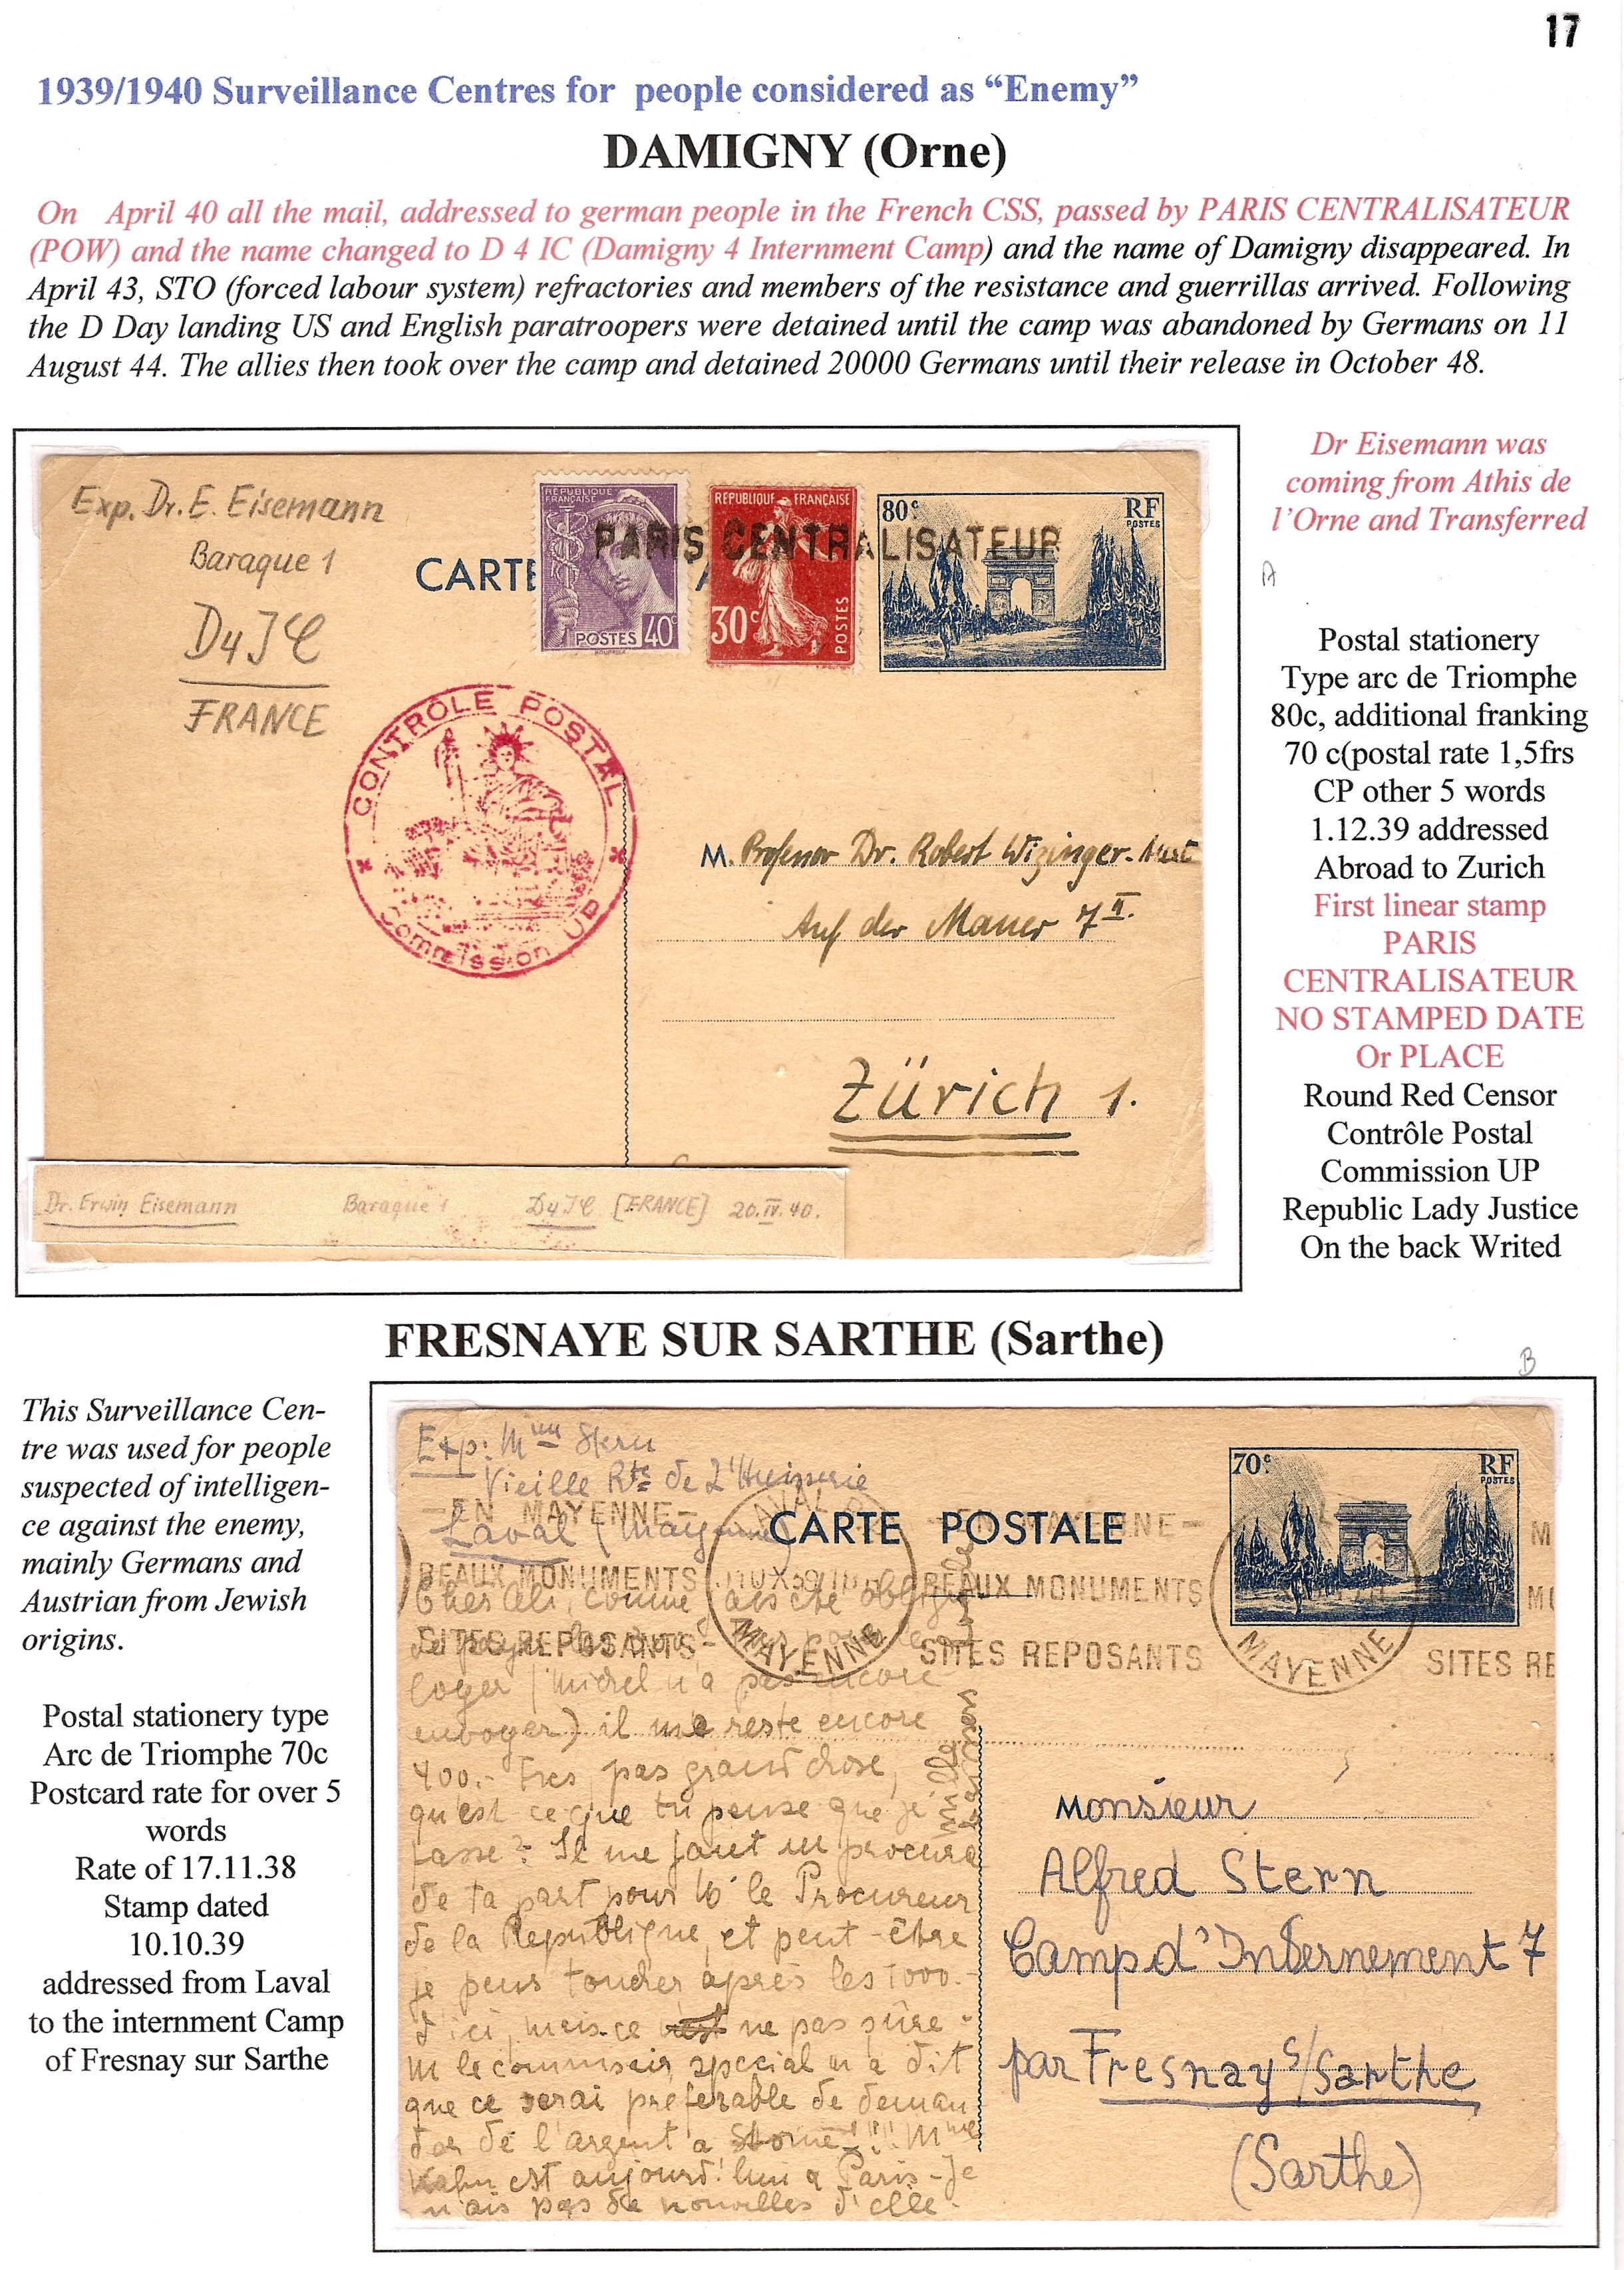 17
1939/1940 Surveillance Centres for people considered as “Enemy”
DAMIGNY (Orne)
On April 40 all the mail, addressed to german people in the French CSS, passed by PARIS CENTRALISATEUR
(POW) and the name changed to D 4 IC (Damigny 4 Internment Camp) and the name of Damigny disappeared. In
April 43, STO (forced labour system) refractories and members of the resistance and guerrillas arrived. Following
the D Day landing US and English paratroopers were detained until the camp was abandoned by Germans on 11
August 44. The allies then took over the camp and detained 20000 Germans until their release in October 48.
Exp. Dr. E. Eisemann
Baraque 1
D4JC
FRANCE
CARTE
RÉPUBLIQUE FRANÇAISE
POSTES 40c
RÉPUBLIQUE FRANÇAISE
30c POSTES
80c RF
POSTES
PARIS CENTRALISATEUR
CONTRÔLE POSTAL
Commission UP
M. Professor Dr. Robert Wizinger-Aust
Auf der Mauer 7 II.
Zürich 1.
Dr. Erwin Eisemann Baraque 1 D4JC [FRANCE] 20.IV.40.
Dr Eisemann was
coming from Athis de
l’Orne and Transferred
A
Postal stationery
Type arc de Triomphe
80c, additional franking
70 c(postal rate 1,5frs
CP other 5 words
1.12.39 addressed
Abroad to Zurich
First linear stamp
PARIS
CENTRALISATEUR
NO STAMPED DATE
Or PLACE
Round Red Censor
Contrôle Postal
Commission UP
Republic Lady Justice
On the back Writed
FRESNAYE SUR SARTHE (Sarthe)
B
This Surveillance Cen-
tre was used for people
suspected of intelligen-
ce against the enemy,
mainly Germans and
Austrian from Jewish
origins.
Postal stationery type
Arc de Triomphe 70c
Postcard rate for over 5
words
Rate of 17.11.38
Stamp dated
10.10.39
addressed from Laval
to the internment Camp
of Fresnay sur Sarthe
Exp: Mme Stern
Vieille Rte de l'Huisserie
Laval (Mayenne)
CARTE POSTALE
70c RF
POSTES
EN MAYENNE
BEAUX MONUMENTS
SITES REPOSANTS
MAYENNE
BEAUX MONUMENTS
SITES REPOSANTS
MAYENNE
SITES RE
loger (Michel n'a pas encore
envoyer) il me reste encore
400.- Frcs, pas grand chose,
qu'est ce que tu pense que je
fasse? Il me faut un procura
de ta part pour le Procureur
de la Republique, et peut-être
je peux toucher après les 1000.-
d'ici, mais ce n'est ne pas sûre -
M le commissair special m'a dit
que ce serai preferable de deman
der de l'argent a !!! Mme
Kahn est aujourd'hui a Paris - Je
n'ais pas de nouvelles d'elle.
mille
Monsieur
Alfred Stern
Camp d'Internement 7
par Fresnay s/Sarthe
(Sarthe)